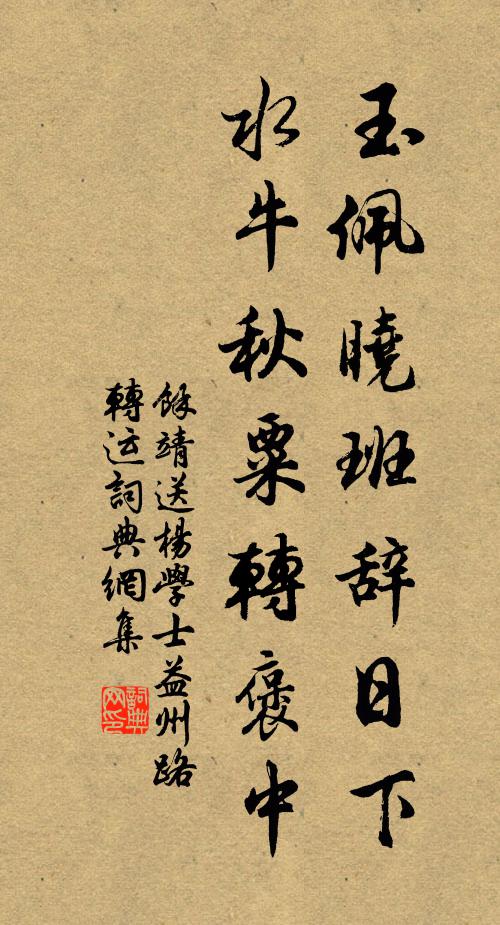 玉佩曉班辞日下
水牛秋粟轉褒中
餘靖送楊學士益州路
轉运詞典網集
詞典网印